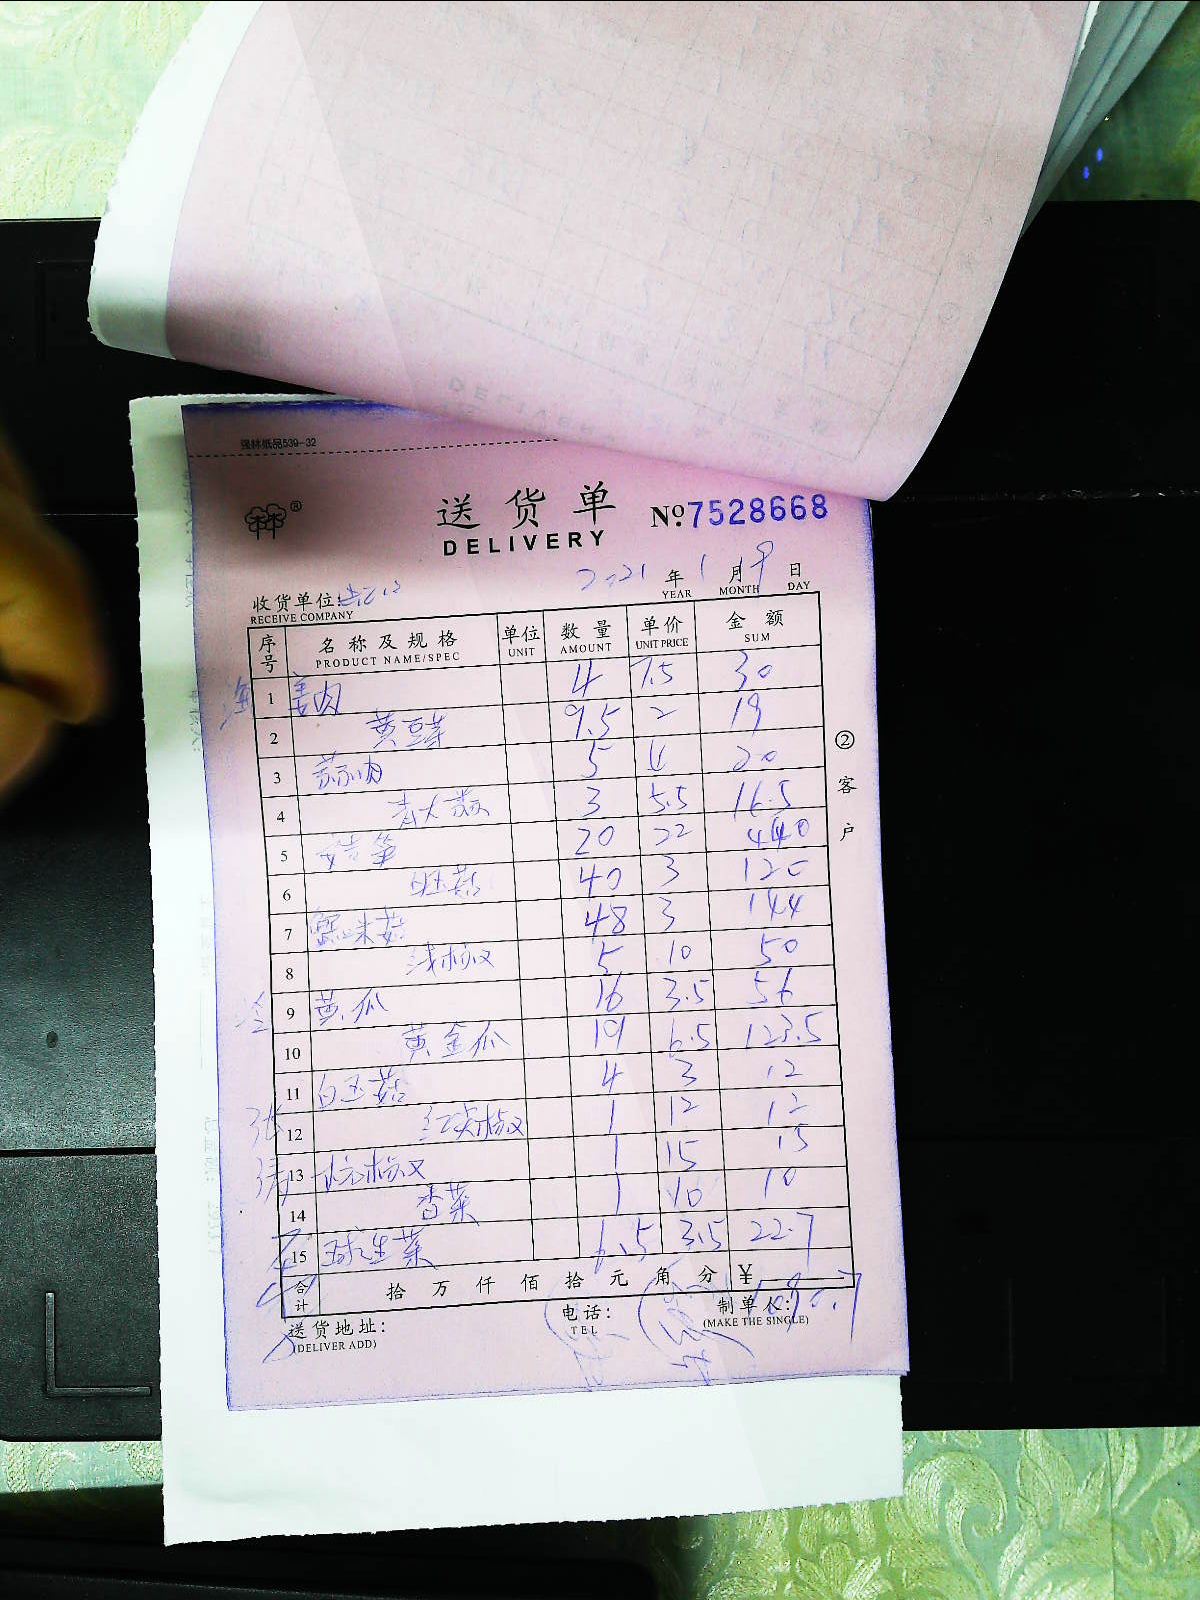 强林纸品539-32
送货单 №7528668
DELIVERY
2021 年 1 月 9 日
YEAR MONTH DAY
收货单位:
RECEIVE COMPANY
序号 名称及规格 单位 数量 单价 金额
PRODUCT NAME/SPEC UNIT AMOUNT UNIT PRICE SUM
1 姜肉 4 7.5 30
2 黄豆芽 9.5 2 19
3 蒜肉 5 4 20
4 青大 3 5.5 16.5
5 20 22 440
6 白玉菇 40 3 120
7 蟹味菇 48 3 144
8 浅椒 5 10 50
9 黄瓜 16 3.5 56
10 黄金瓜 19 6.5 123.5
11 白玉菇 4 3 12
张 12 红尖椒 1 12 12
13 杭椒 1 15 15
14 香菜 1 10 10
15 球生菜 6.5 3.5 22.7
合计 拾 万 仟 佰 拾 元 角 分 ¥ 1090.7
送货地址: 电话: 制单人:
(DELIVER ADD) TEL (MAKE THE SINGLE)
②客户